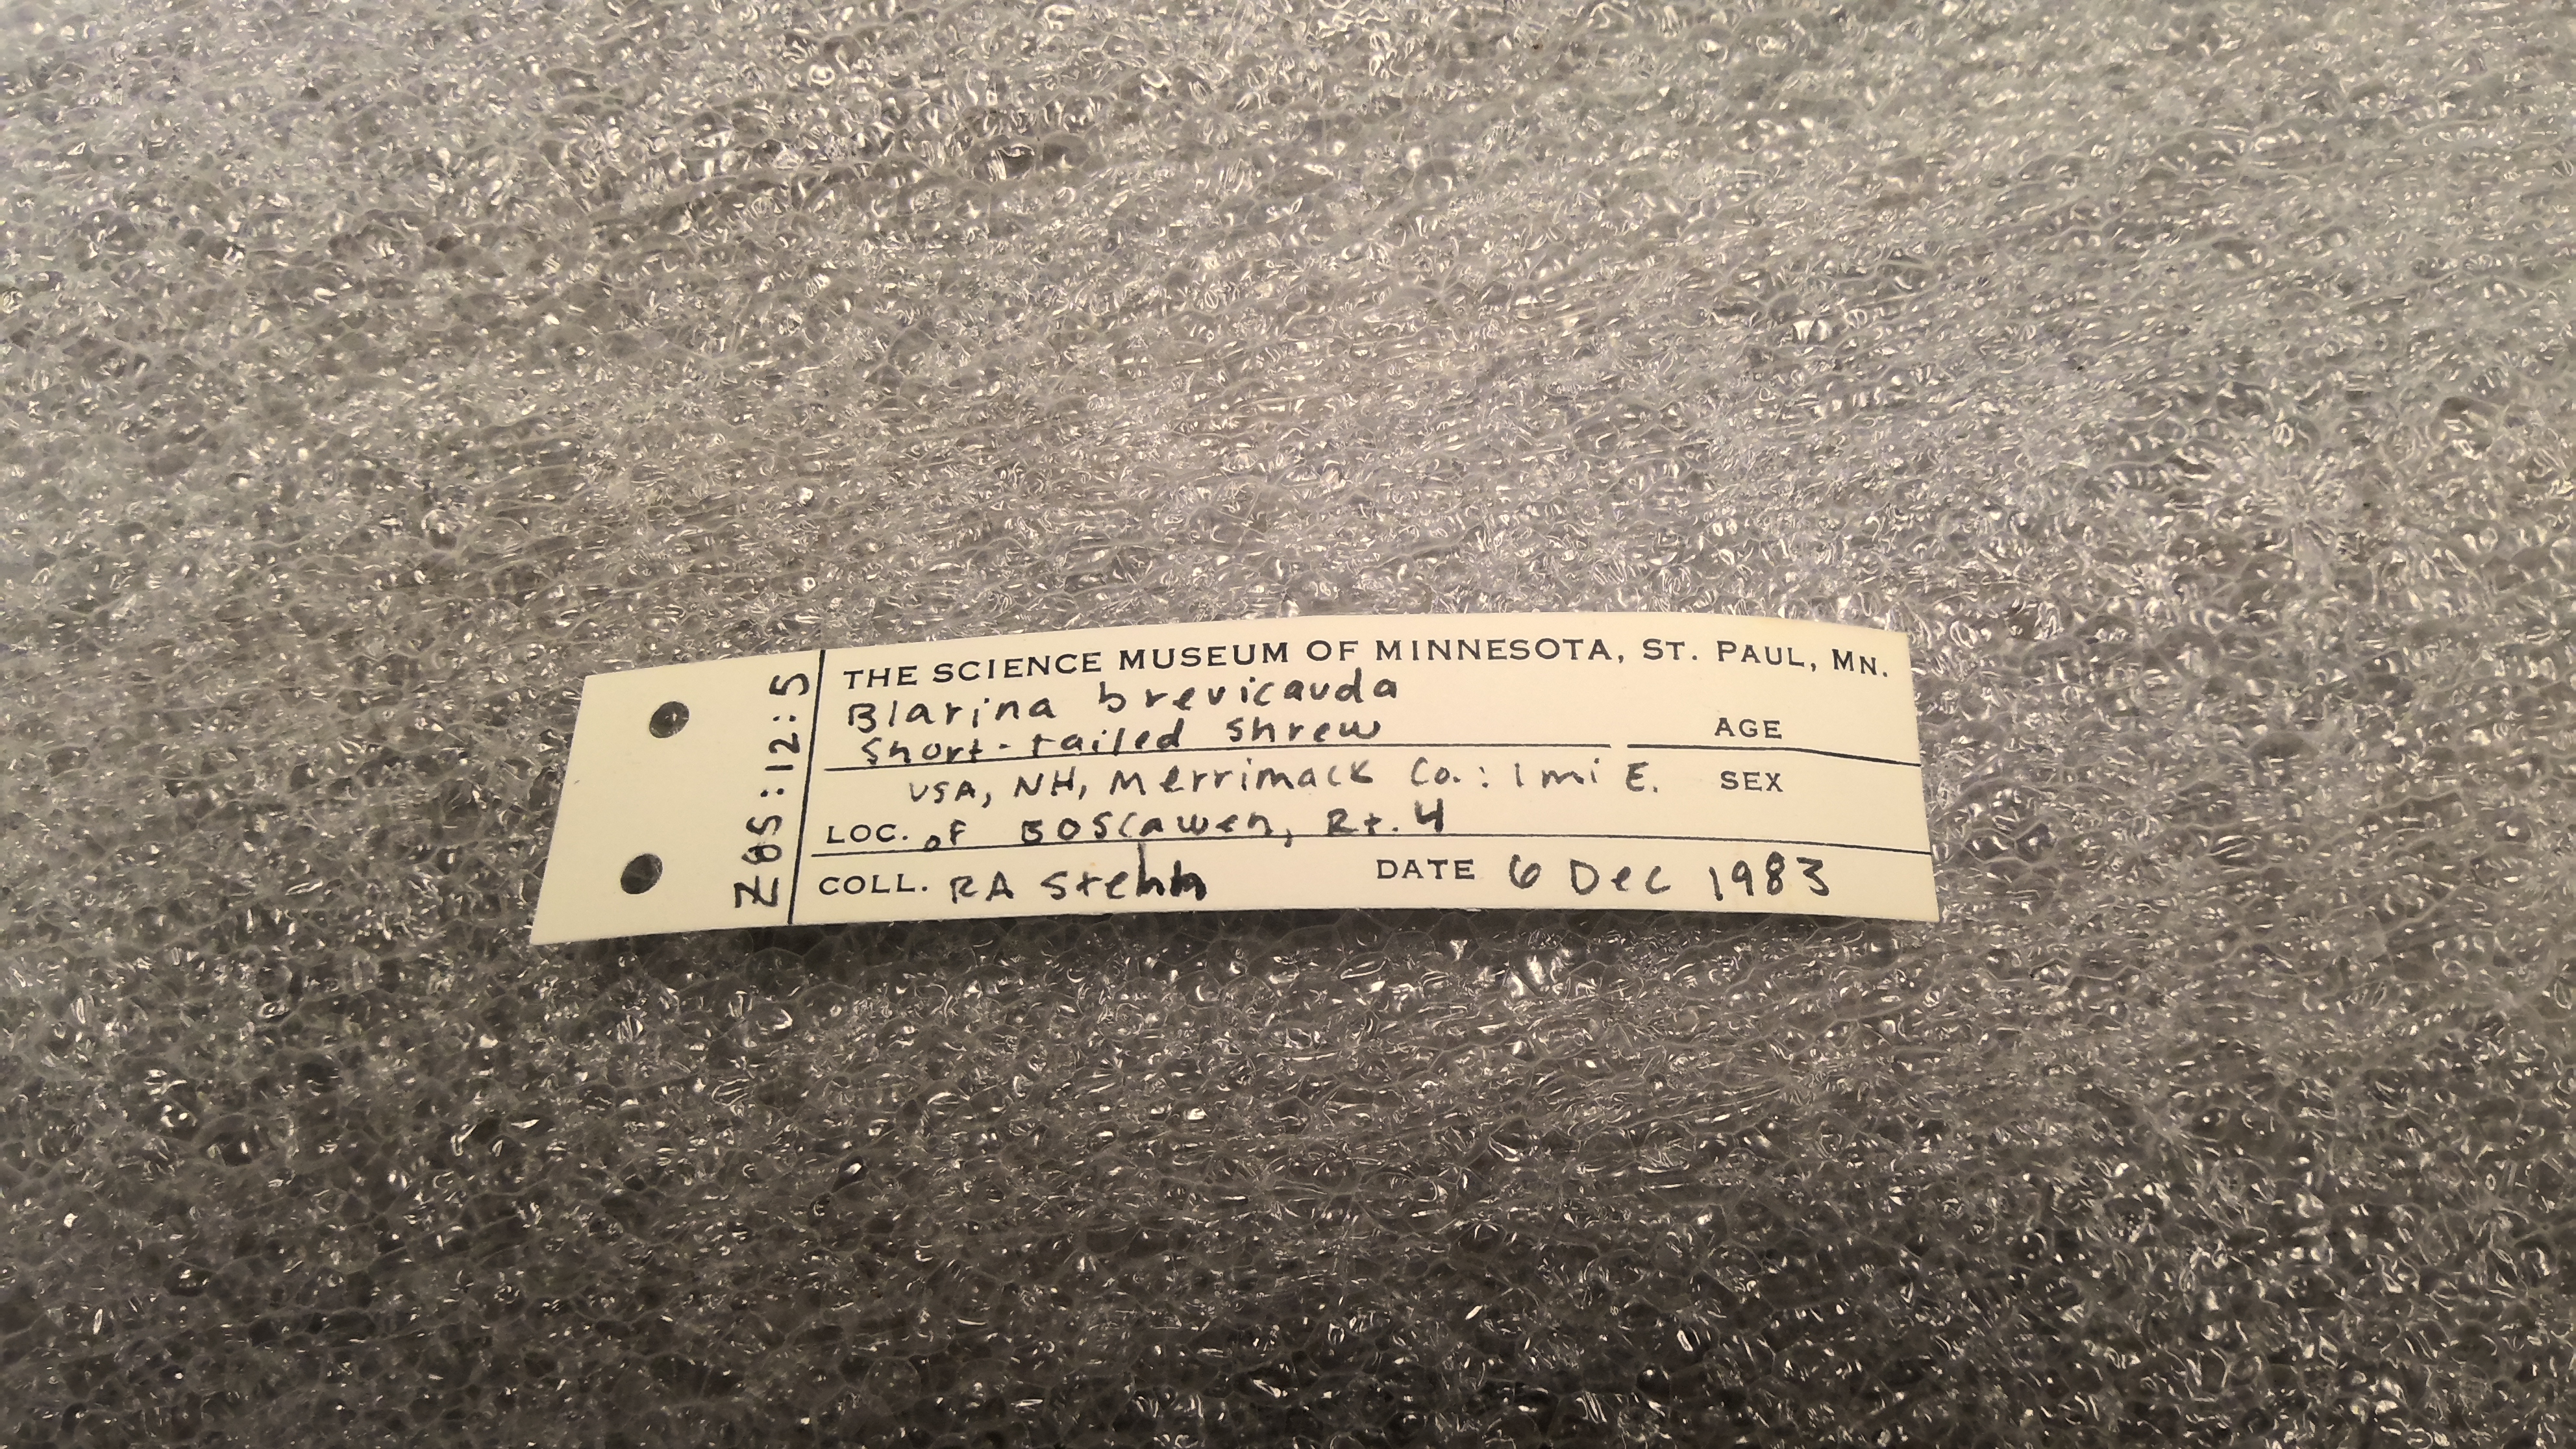 Z85:12:5
THE SCIENCE MUSEUM OF MINNESOTA, ST. PAUL, MN.
Blarina brevicauda
Short-tailed shrew AGE
USA, NH, Merrimack Co.: 1 mi E. SEX
LOC. of Boscawen, Rt. 4
COLL. RA Stehn DATE 6 Dec 1983